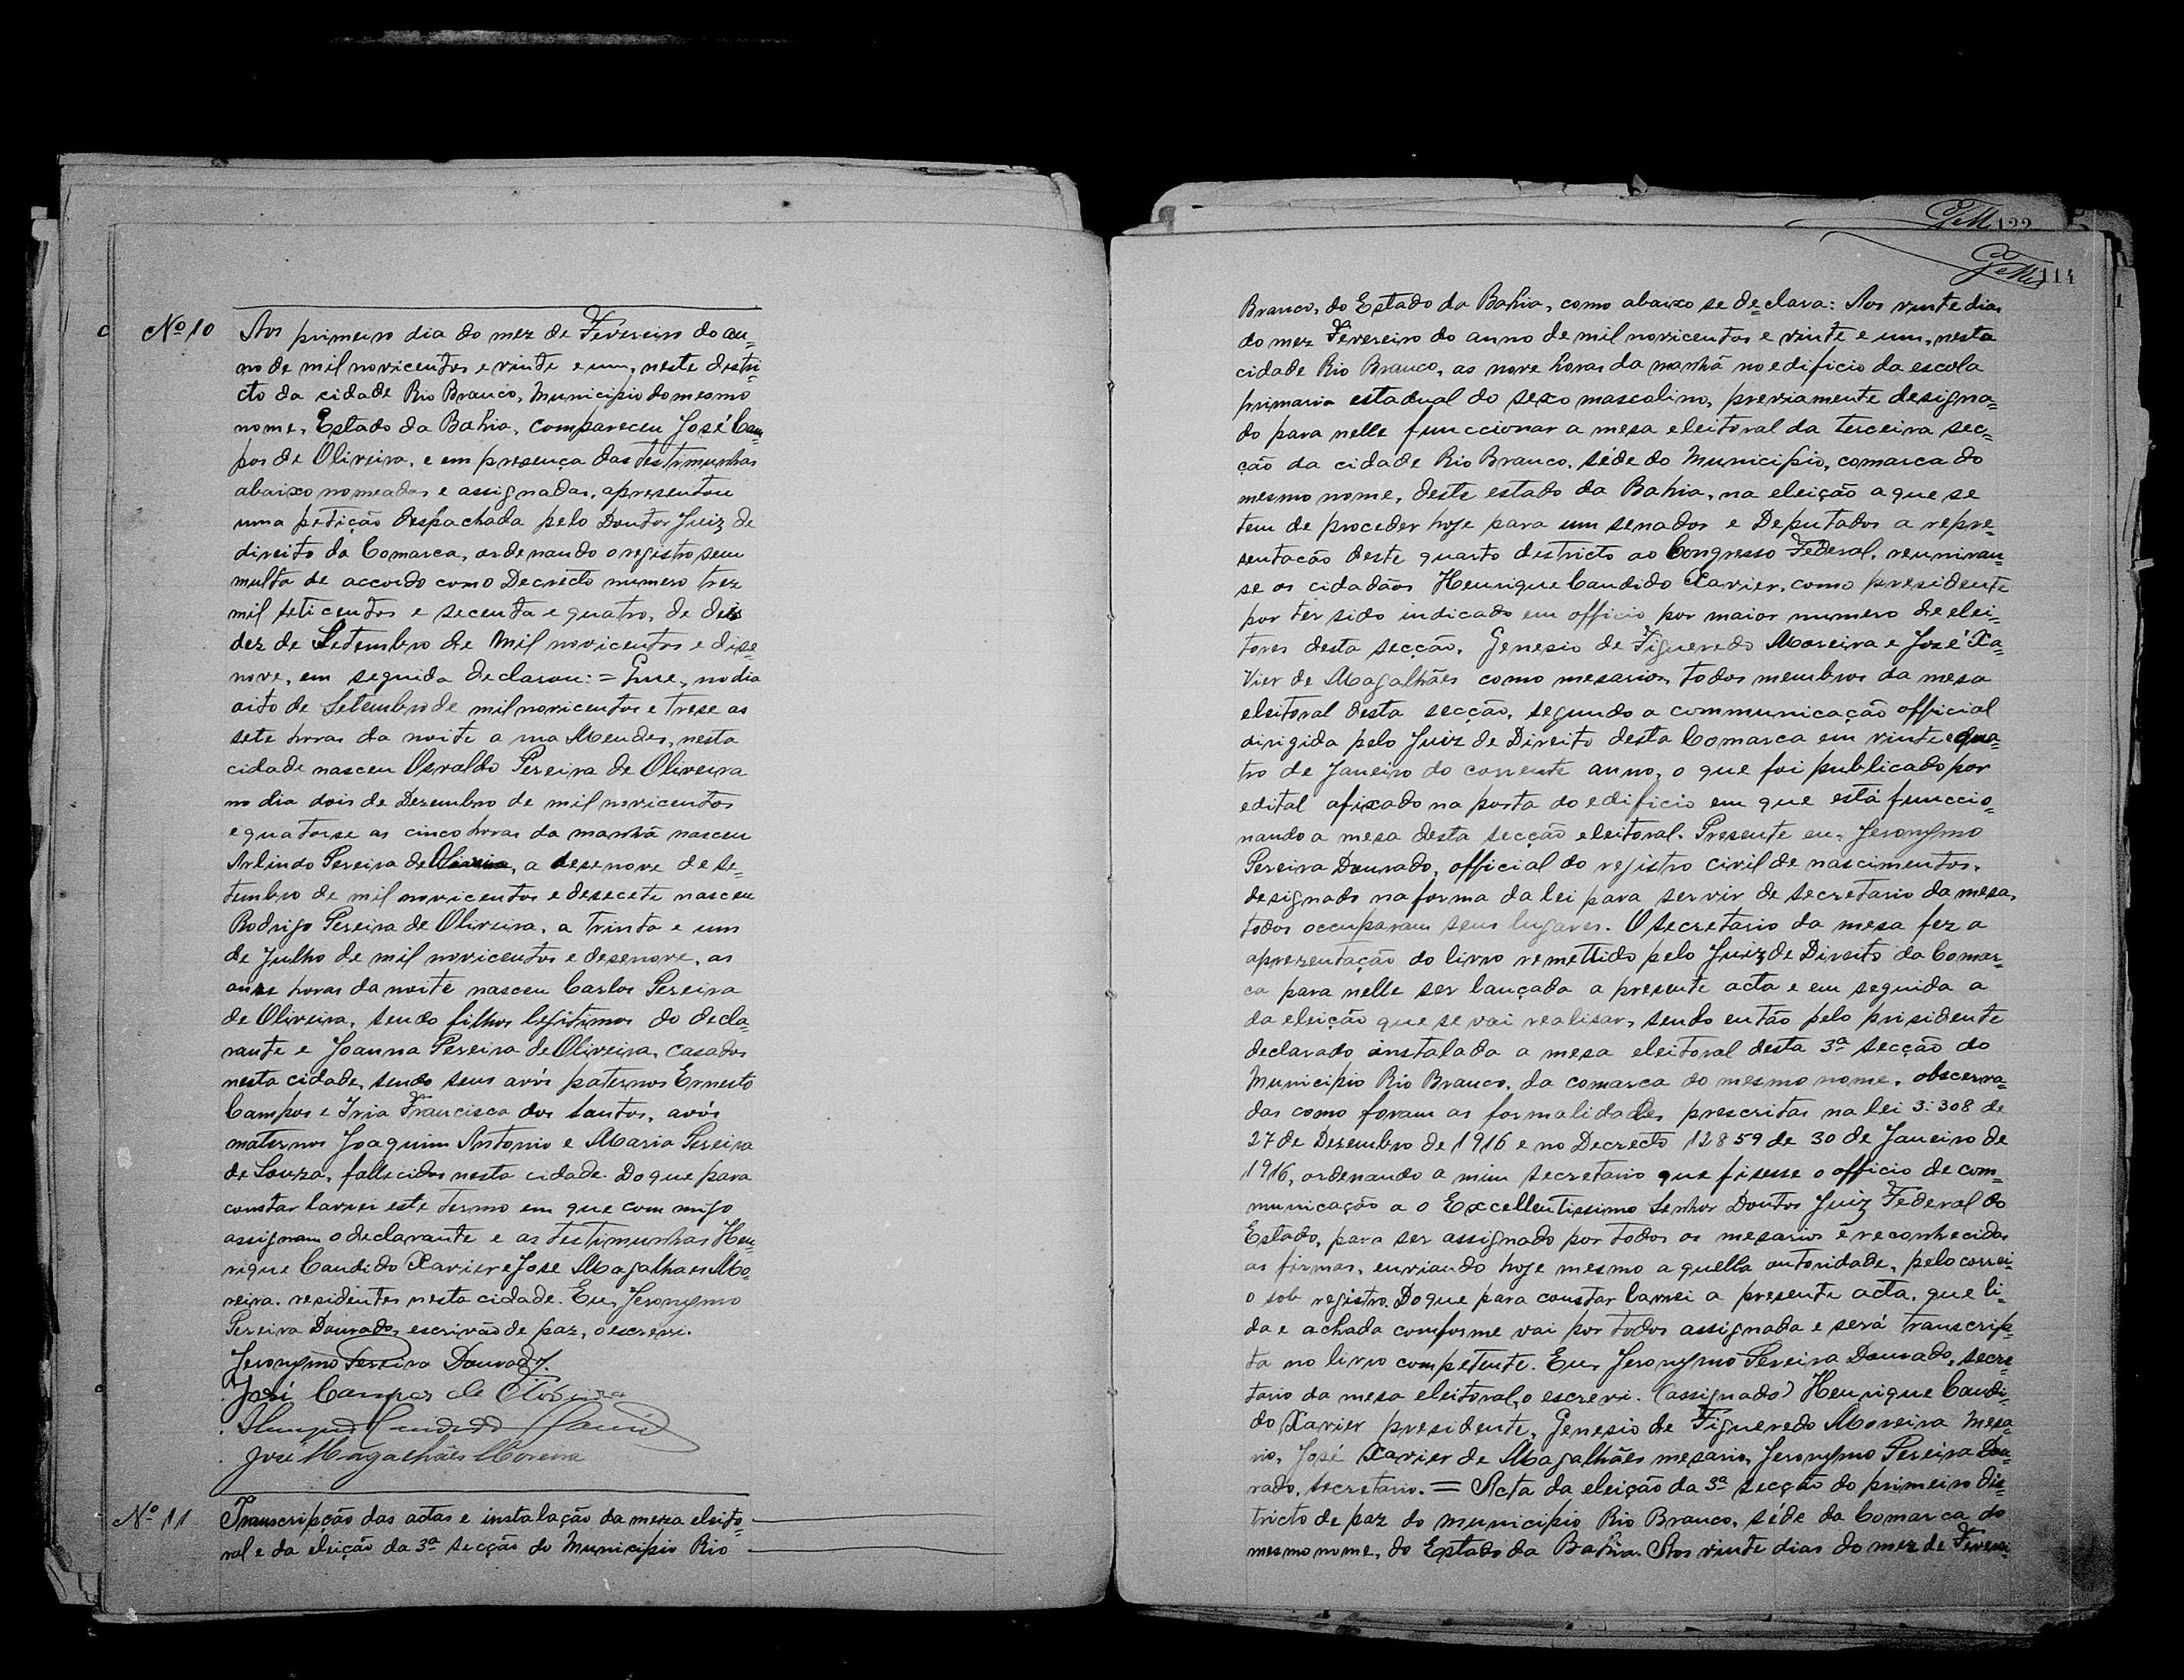 Nº 10
Aos primeiro dia do mez de Fevereiro do an-
no de mil novicentos e vinte e um, neste distri-
cto da cidade Rio Branco, Municipio do mesmo
nome, Estado da Bahia, compareceu José Cam-
pos de Oliveira, e em presença das testimunhas
abaixo nomeadas e assignadas, apresentou
uma petição despachada pelo Doutor Juiz de
direito da Comarca, ordenando o registro sem
multa de accordo com o Decreto numero trez
mil seticentos e secenta e quatro, de deis
dez de Setembro de Mil novicentos e dise-
nove, em seguida declarou: = Que, no dia
oito de Setembro de mil novicentos e trese as
sete horas da noite a rua Mendes, nesta
cidade nasceu Osvaldo Pereira de Oliveira
no dia dois de Dezembro de mil novicentos
e quatorse as cinco horas da manhã nasceu
Arlindo Pereira de Oliveira, a desenove de Se-
tembro de mil novicentos e desecete nasceu
Rodrigo Pereira de Oliveira, a trinta e um
de Julho de mil novicentos e desenove, as
onse horas da noite nasceu Carlos Pereira
de Oliveira, sendo filhos legitimos do decla-
rante e Joanna Pereira de Oliveira, casados
nesta cidade, sendo seus avós paternos Ernesto
Campos e Iria Francisca dos Santos, avós
maternos Joaquim Antonio e Maria Pereira
de Souza, fallecidos nesta cidade. Do que para
constar lavrei este termo em que com migo
assignam o declarante e as testimunhas Hen-
rique Candido Xavier e José Magalhaes Mo-
reira, residentes nesta cidade. Eu, Jeronymo
Pereira Dourado, escrivão de paz, o escrevi.
Jeronymo Pereira Dourado.
José Campos de Oliveira
Henrique Candido Xavier
José Magalhães Moreira
Nº 11
Transcripção das actas e instalação da meza eleito-
ral e da eleição da 3ª secção do Municipio Rio
122
114
Branco, do Estado da Bahia, como abaixo se de=clara: Aos vinte dias
do mez Fevereiro do anno de mil novicentos e vinte e um, nesta
cidade Rio Branco, as nove horas da manhã no edificio da escola
primaria estadual do sexo mascolino, previamente designa-
do para nelle funccionar a mesa eleitoral da terceira sec-
ção da cidade Rio Branco, séde do Municipio, comarca do
mesmo nome, deste estado da Bahia, na eleição a que se
tem de proceder hoje para um senador e Deputados a repre-
sentacão deste quarto districto ao Congresso Federal, reuniram
se os cidadãos Henrique Candido Xavier, como presidente
por ter sido indicado em officio por maior numero de elei-
tores desta secção, Genesio de Figueredo Moreira e José Xa-
vier de Magalhães como mesarios, todos membros da mesa
eleitoral desta secção, segundo a communicação official
dirigida pelo Juiz de Direito desta Comarca em vinte e qua-
tro de Janeiro do corrente anno, o que foi publicado por
edital afixado na porta do edificio em que está funccio-
nando a mesa desta secção eleitoral. Presente eu, Jeronymo
Pereira Dourado, official do registro civil de nascimentos,
designado na forma da lei para servir de secretario da mesa,
todos occuparam seus lugares. O secretario da mesa fez a
aprezentação do livro remettido pelo Juiz de Direito da Comar-
ca para nelle ser lançada a presente acta e em seguida a
da eleição que se vai realisar, sendo então pelo prisidente
declarado instalada a mesa eleitoral desta 3ª secção do
Municipio Rio Branco, da comarca do mesmo nome, obscerva-
das como foram as formalidades prescritas na lei 3:308 de
27 de Desembro de 1916 e no Decrecto 12859 de 30 de Janeiro de
1916, ordenando a mim secretario que fisesse o officio de com-
municação a o Excellentissimo Senhor Doutor Juiz Federal do
Estado, para ser assignado por todos os mesarios e reconhecidas
as firmas, enviando hoje mesmo a quella autoridade, pelo correi-
o sob registro. Do que para constar lavrei a presente acta, que li-
da e achada conforme vai por todos assignada e será transcrip-
ta no livro competente. Eu, Jeronymo Pereira Dourado, secre-
tario da mesa eleitoral, o escrevi. (assignado) Henrique Candi-
do Xavier presidente, Genesio de Figueredo Moreira mesa-
rio, José Xavier de Magalhães mesario, Jeronymo Pereira Dou-
rado, secretario. = Acta da eleição da 3ª secção do primeiro dis-
tricto de paz do municipio Rio Branco, séde da Comarca do
mesmo nome, do Estado da Bahia. Aos vinte dias do mez de Feverei-